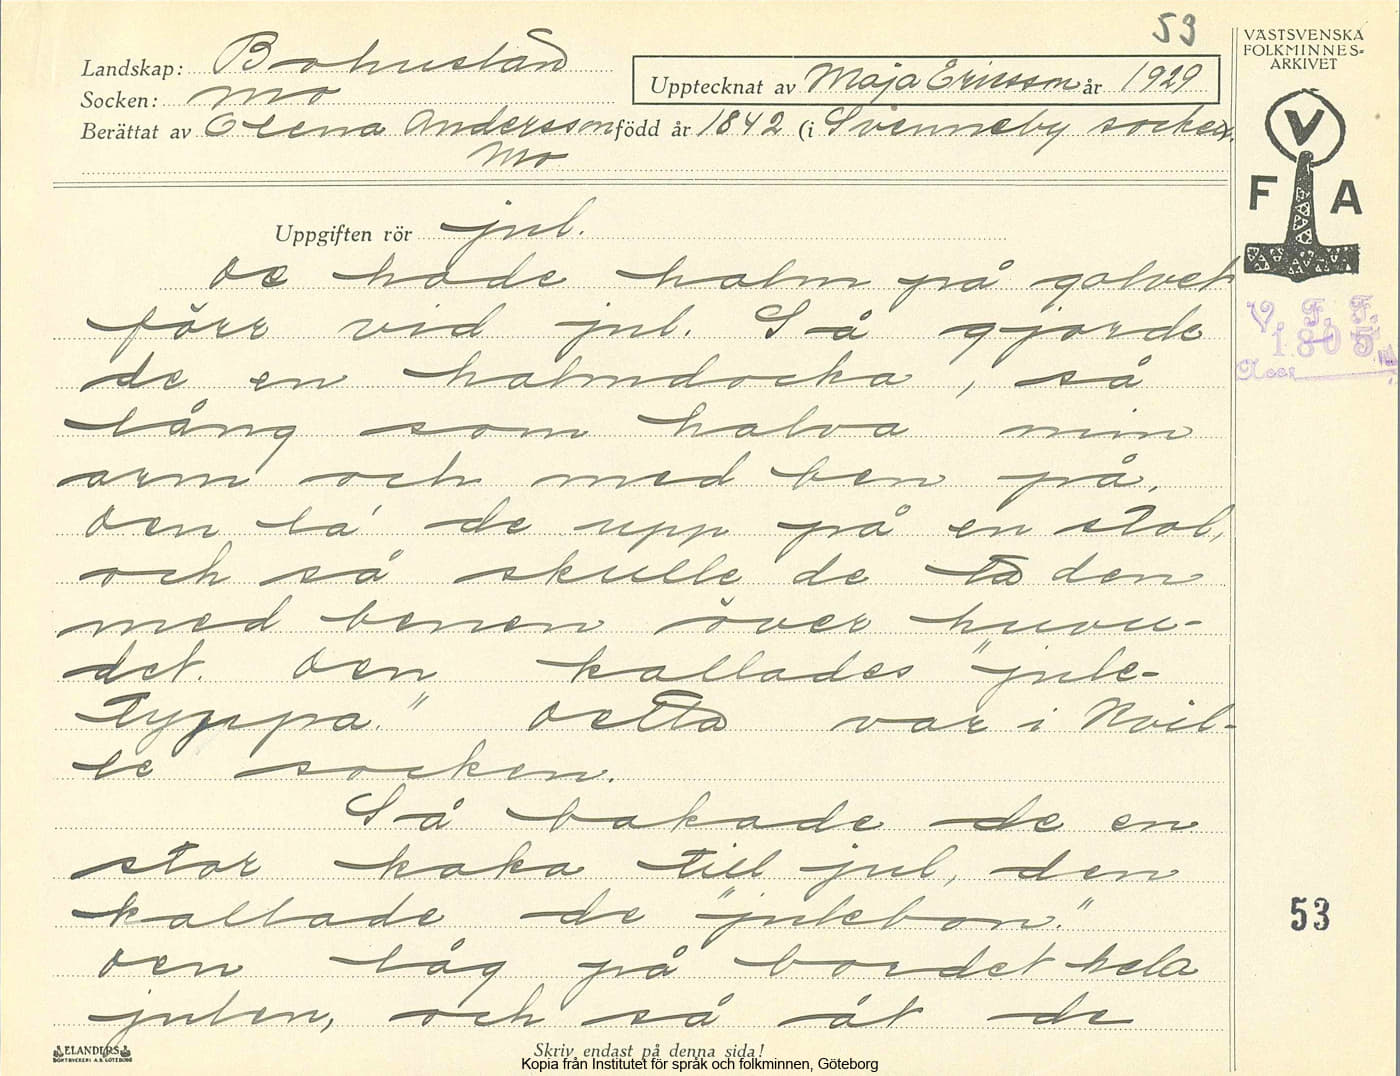 53
VÄSTSVENSKA
FOLKMINNES=
ARKIVET
Landskap: Bohuslän
Socken: Mo
Upptecknat av Maja Ericsson år 1929
Berättat av Olena Andersson född år 1842 (i Svenneby socken.
Mo
V
F A
Uppgiften rör jul.
V. F. F.
1805
Acc.
De hade halm på golvet
förr vid jul. Så gjorde
de en halmdocka, så
lång som halva min
arm och med ben på.
Den la' de upp på en stol,
och så skulle de ta den
med benen över huvu-
det. Den kallades "jule-
typpa." Detta var i Kvil-
le socken.
Så bakade de en
stor kaka till jul, den
kallade de "julebon."
Den låg på bordet hela
julen, och så åt de
53
ELANDERS
BOKTRYCKERI A.B. GÖTEBORG
Skriv endast på denna sida!
Kopia från Institutet för språk och folkminnen, Göteborg